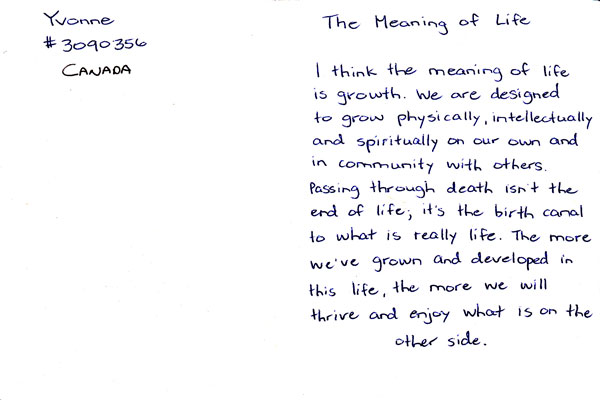 Yvonne
#3090356
CANADA
The Meaning of Life
I think the meaning of life
is growth. We are designed
to grow physically, intellectually
and spiritually on our own and
in community with others.
Passing through death isn't the
end of life; it's the birth canal
to what is really life. The more
we've grown and developed in
this life, the more we will
thrive and enjoy what is on the
other side.